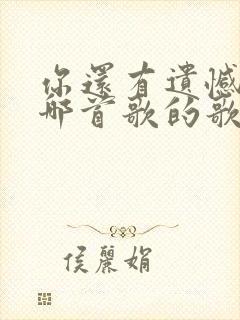 你還有遺憾
那首歌的歌
侯麗娟